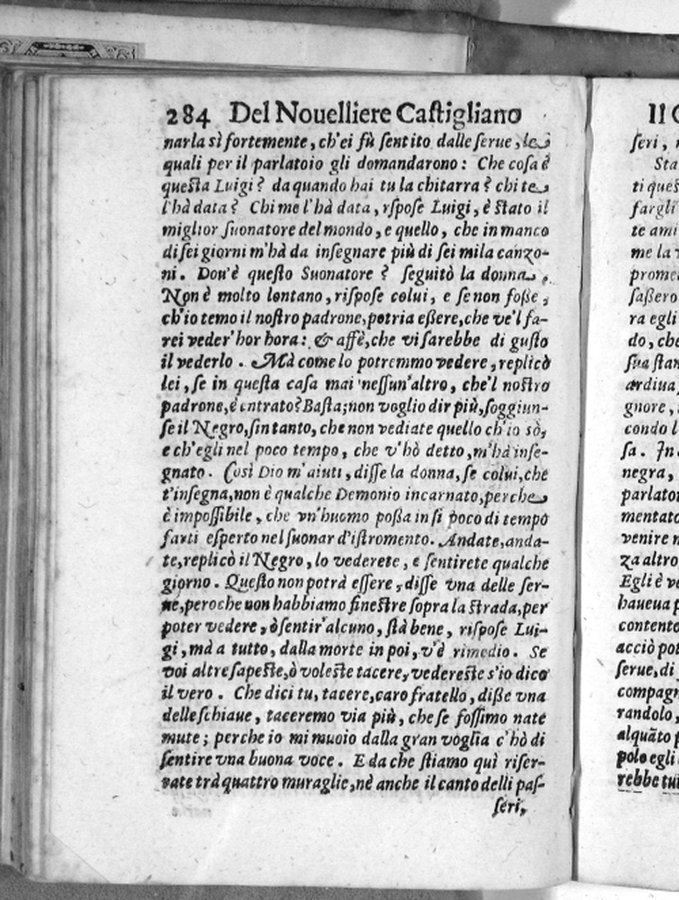 284 Del Nouelliere Castigliano
narla sì fortemente, ch'ei fù sentito dalle serue, le
quali per il parlatoio gli domandarono: Che cosa è
questa Luigi? da quando hai tu la chitarra? chi te
l'hà data? Chi me l'hà data, rspose Luigi, è stato il
miglior suonatore del mondo, e quello, che in manco
di sei giorni m'hà da insegnare più di sei mila canzo-
ni. Dou'è questo Suonatore? seguitò la donna.
Non è molto lontano, rispose colui, e se non fosse,
ch'io temo il nostro padrone, potria essere, che ve'l fa-
rei veder' hor hora: & affè, che vi sarebbe di gusto
il vederlo. Mà come lo potremmo vedere, replicò
lei, se in questa casa mai nessun'altro, che'l nostro
padrone, è entrato? Basta; non voglio dir più, soggiun-
se il Negro, sin tanto, che non vediate quello ch'io sò,
e ch'egli nel poco tempo, che v'hò detto, m'hà inse-
gnato. Così Dio m'aiuti, disse la donna, se colui, che
t'insegna, non è qualche Demonio incarnato, perche
è impossibile, che vn'huomo possa in sì poco di tempo
farti esperto nel suonar d'istromento. Andate, anda-
te, replicò il Negro, lo vederete, e sentirete qualche
giorno. Questo non potrà essere, disse vna delle ser-
ue, peroche non habbiamo finestre sopra la strada, per
poter vedere, ò sentir' alcuno, stà bene, rispose Lui-
gi, mà a tutto, dalla morte in poi, v'è rimedio. Se
voi altre sapeste, ò voleste tacere, vedereste s'io dico
il vero. Che dici tu, tacere, caro fratello, disse vna
delle schiaue, taceremo via più, che se fossimo nate
mute; perche io mi muoio dalla gran voglia c'hò di
sentire vna buona voce. E da che stiamo quì riser-
rate trà quattro muraglie, nè anche il canto delli pas-
seri,
Il C
seri,
Sta
ti ques
fargli
te ami
me la
prome
sassero
ra egli
do, che
sua stan
ardiua
gnore,
condo l
sa. In
negra,
parlato
mentato
venire
za altro
Egli è v
haueua p
contento
acciò pot
serue, di
compagn
randolo,
alquāto p
polo egli
rebbe tut